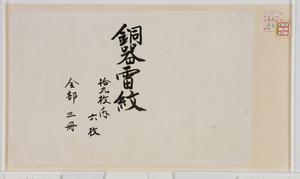 銅器雷紋
拾九枚ノ内
六枚
全部 三冊